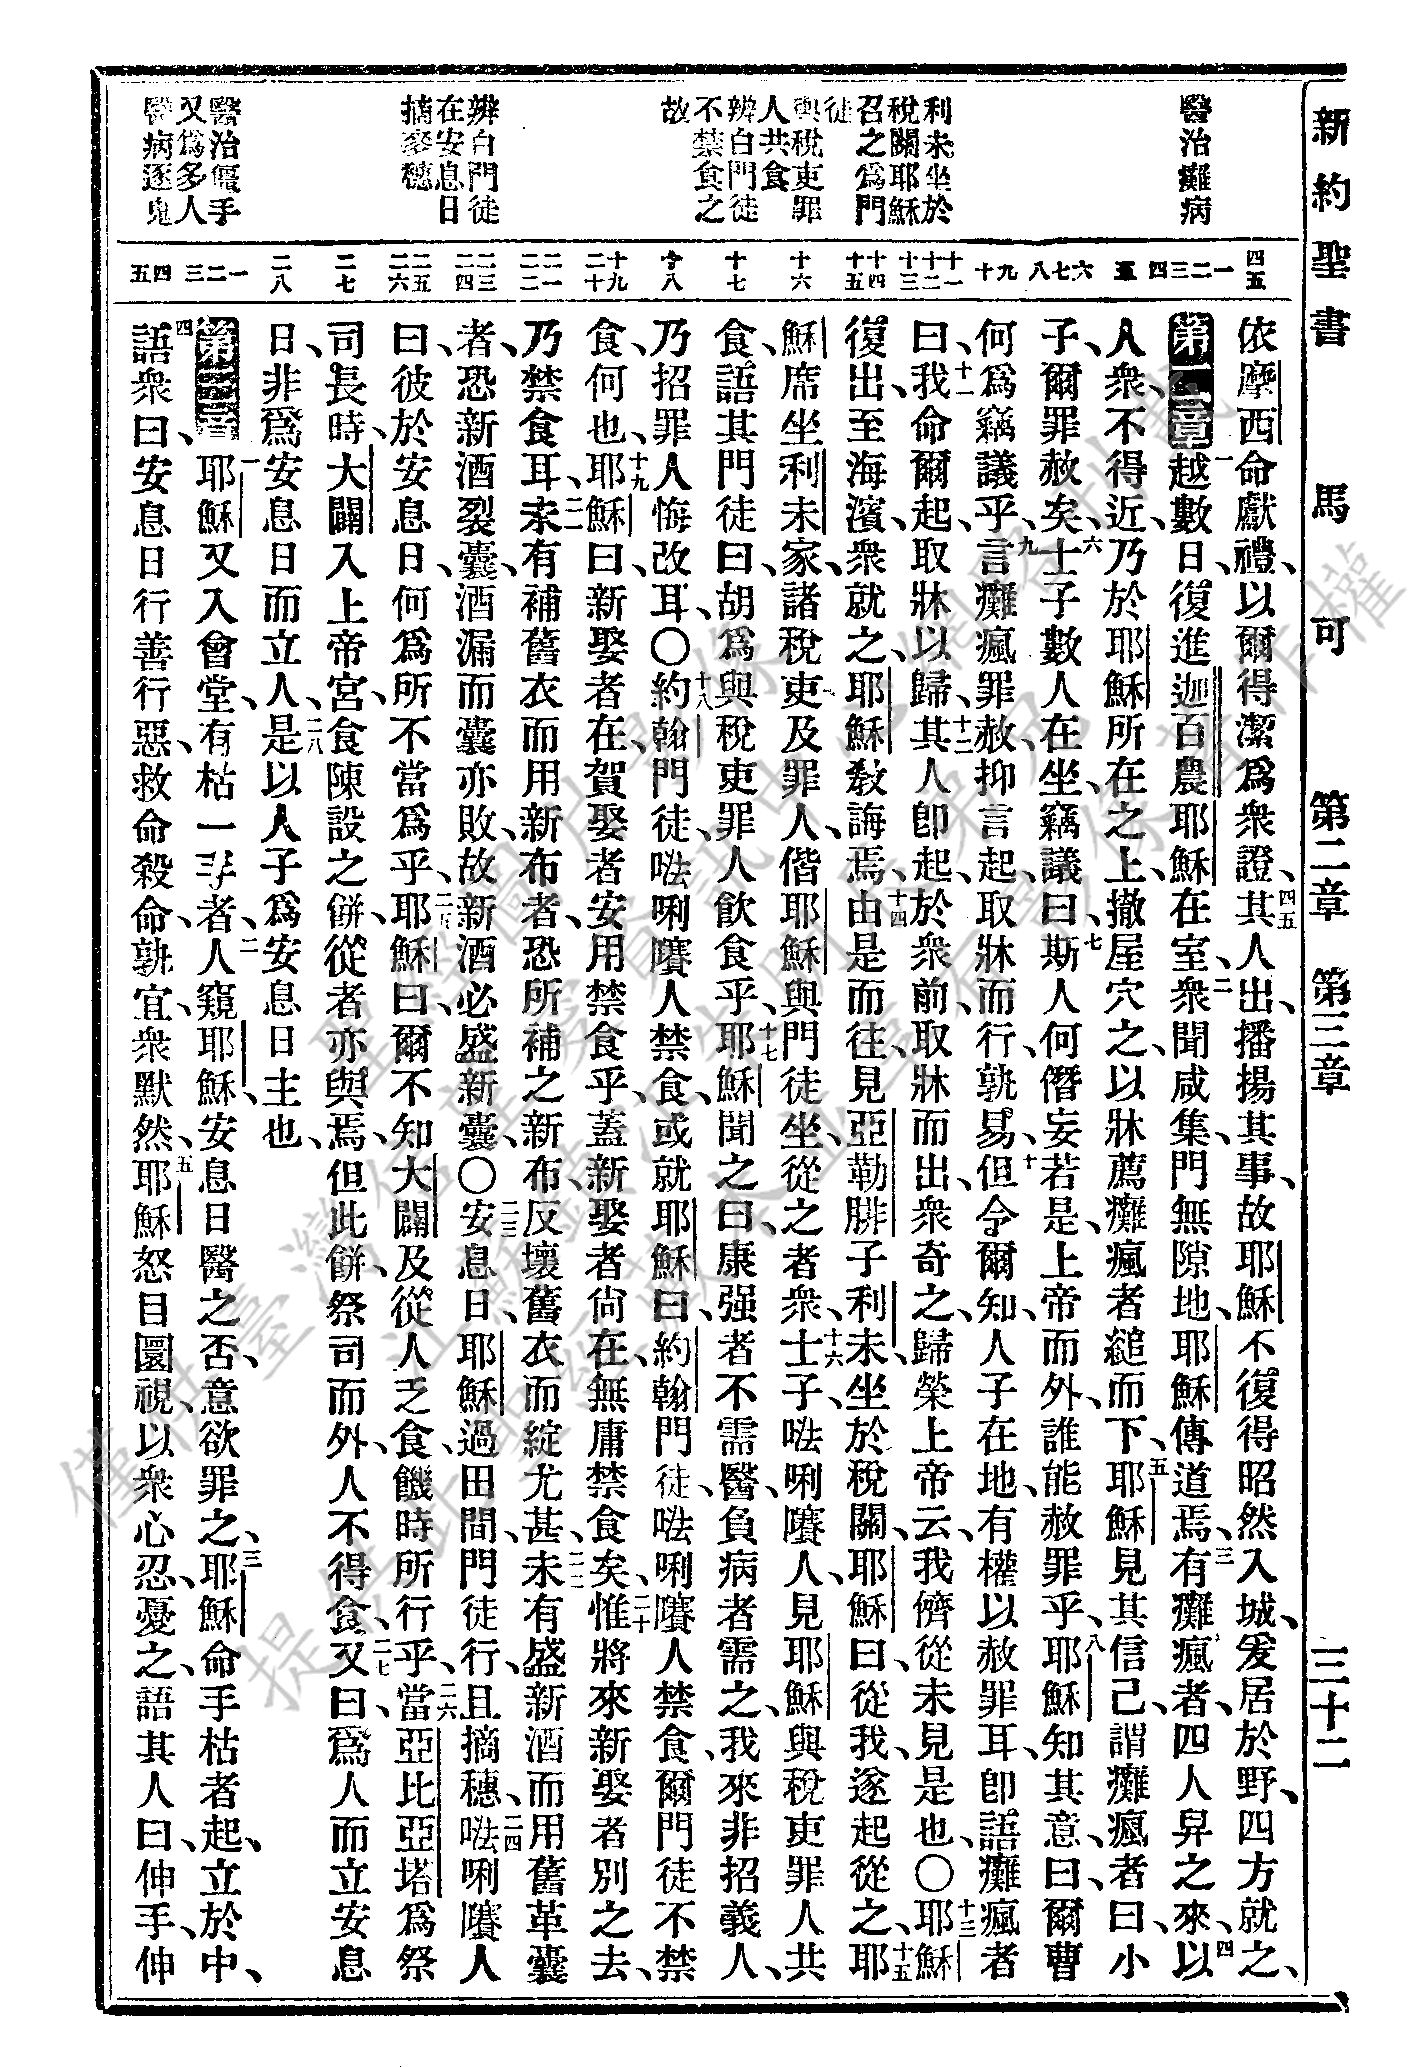 新約聖書 馬可 第二章 第三章 三十二
醫治癱病
利未坐於
稅關耶穌
召之爲門
徒
與稅吏罪
人共食
辨白門徒
不禁食之
故
辨白門徒
在安息日
摘麥穗
醫治傴手
又爲多人
醫病逐鬼
四五 一二三四 五 六七八 九十 十一十二十三 十四十五 十六 十七 十八 十九二十 二一二二 二三二四 二五二六 二七 二八 一二三 四五
依摩西命獻禮、以爾得潔爲衆證、四五其人出、播揚其事、故耶穌不復得昭然入城、爰居於野、四方就之、
第二章一越數日、復進迦百農、耶穌在室、二衆聞咸集、門無隙地、耶穌傳道焉、三有癱瘋者、四人舁之來、四以
人衆、不得近、乃於耶穌所在之上、撤屋穴之、以牀薦癱瘋者縋而下、五耶穌見其信己、謂癱瘋者曰、小
子、爾罪赦矣、六士子數人在坐、竊議曰、七斯人何僭妄若是、上帝而外、誰能赦罪乎、八耶穌知其意、曰、爾曹
何爲竊議乎、九言癱瘋罪赦、抑言起、取牀而行、孰易、十但令爾知、人子在地、有權以赦罪耳、卽語癱瘋者
曰、十一我命爾起、取牀以歸、十二其人卽起、於衆前、取牀而出、衆奇之、歸榮上帝云、我儕從未見是也、〇十三耶穌
復出、至海濱、衆就之、耶穌教誨焉、十四由是而往、見亞勒腓子利未、坐於稅關、耶穌曰、從我、遂起從之、十五耶
穌席坐利未家、諸稅吏及罪人、偕耶穌與門徒坐、從之者衆、十六士子、㗓唎㘔人、見耶穌與稅吏罪人共
食、語其門徒曰、胡爲與稅吏罪人飲食乎、十七耶穌聞之曰、康强者不需醫、負病者需之、我來非招義人、
乃招罪人悔改耳、〇十八約翰門徒、㗓唎㘔人禁食、或就耶穌曰、約翰門徒、㗓唎㘔人禁食、爾門徒不禁
食、何也、十九耶穌曰、新娶者在、賀娶者安用禁食乎、蓋新娶者尙在、無庸禁食矣、二十惟將來新娶者別之去、
乃禁食耳、二一未有補舊衣而用新布者、恐所補之新布、反壞舊衣而綻尤甚、二二未有盛新酒而用舊革囊
者、恐新酒裂囊、酒漏而囊亦敗、故新酒必盛新囊、〇二三安息日、耶穌過田間、門徒行、且摘穗、二四㗓唎㘔人
曰、彼於安息日、何爲所不當爲乎、二五耶穌曰、爾不知大闢及從人乏食饑時所行乎、二六當亞比亞塔爲祭
司長時、大闢入上帝宮、食陳設之餅、從者亦與焉、但此餅、祭司而外、人不得食、二七又曰、爲人而立安息
日、非爲安息日而立人、二八是以人子爲安息日主也、
第三章一耶穌又入會堂、有枯一手者、二人窺耶穌安息日醫之否、意欲罪之、三耶穌命手枯者起、立於中、
四語衆曰、安息日行善行惡、救命殺命、孰宜、衆默然、五耶穌怒目圜視、以衆心忍、憂之、語其人曰、伸手、伸